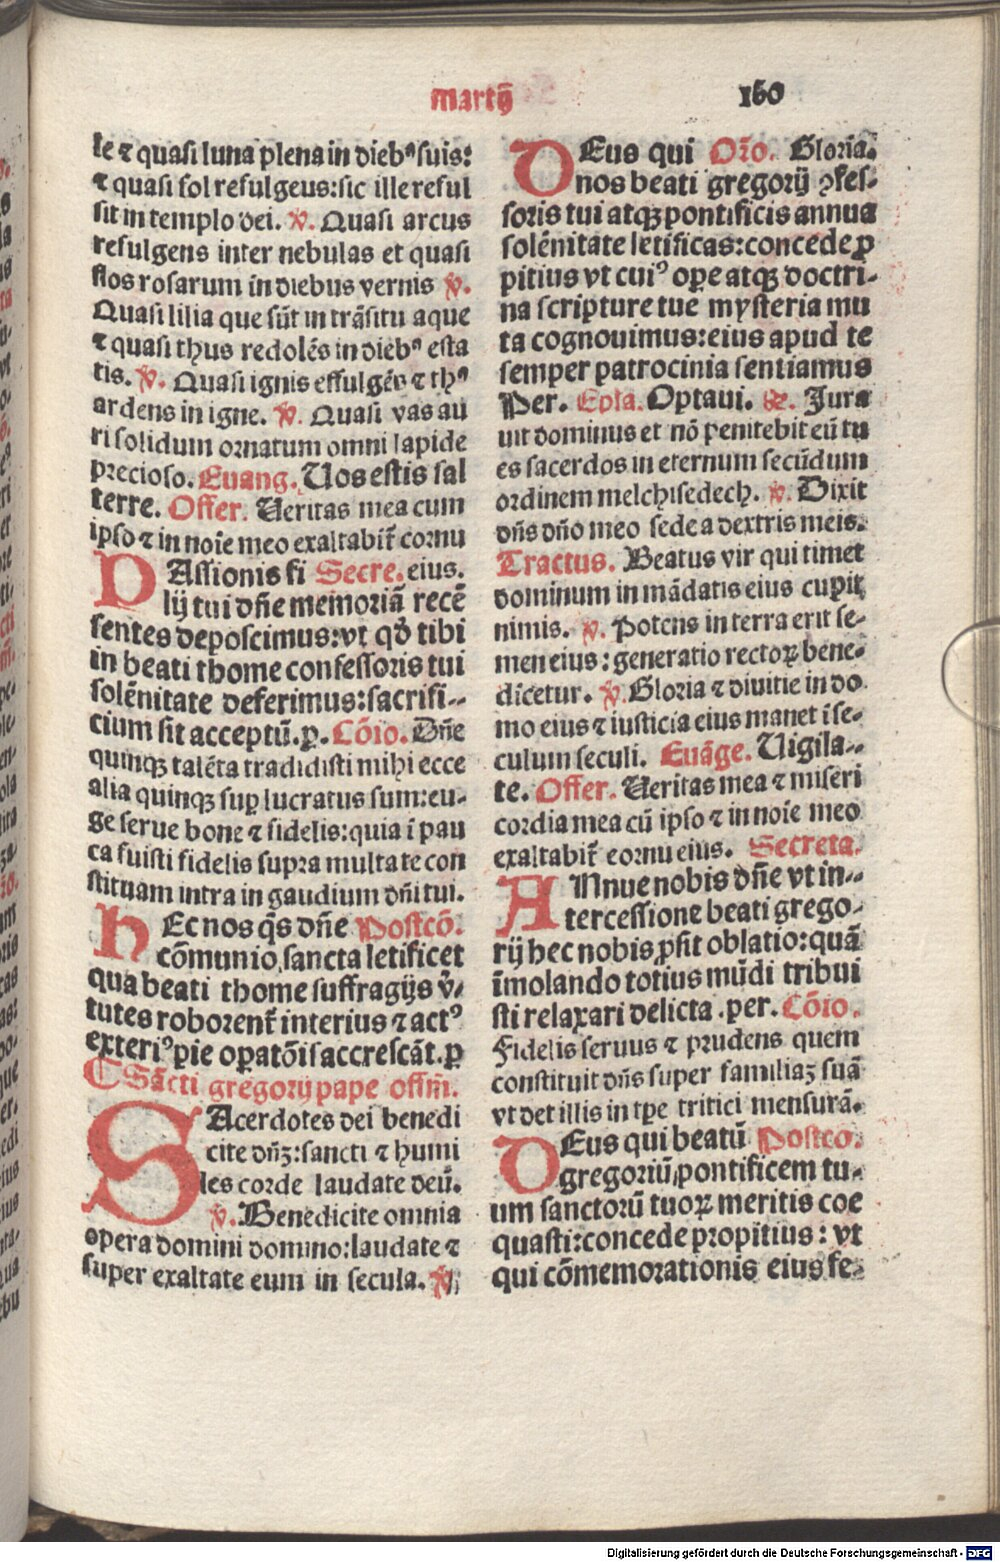 martȳ
160
le ⁊ quasi luna plena in diebꝰ suis:
⁊ quasi sol refulgeus: sic ille reful
sit in templo dei. ℣. Quasi arcus
refulgens inter nebulas et quasi
flos rosarum in diebus vernis ℣.
Quasi lilia que sūt in trāsitu aque
⁊ quasi thus redolēs in diebꝰ esta
tis. ℣. Quasi ignis effulgēs ⁊ thꝰ
ardens in igne. ℣. Quasi vas au
ri solidum ornatum omni lapide
precioso. Euang. Uos estis sal
terre. Offer. Ueritas mea cum
ipso ⁊ in noīe meo exaltabit̄ cornu
PAssionis fi Secre. eius.
lij tui dn̄e memoriā recē
sentes deposcimus: vt qđ tibi
in beati thome confessoris tui
solēnitate deferimus: sacrifi-
cium sit acceptū. ꝑ. Cōīo. Dn̄e
quinqꝫ talēta tradidisti mihi ecce
alia quinqꝫ suꝑ lucratus sum: eu-
ge serue bone ⁊ fidelis: quia ī pau
ca fuisti fidelis supra multa te con
stituam intra in gaudium dn̄i tui.
HEc nos qs̄ dn̄e Postcō.
cōmunio sancta letificet
qua beati thome suffragijs v̄-
tutes roborent̄ interius ⁊ actꝰ
exteriꝰ pie oꝑatōis accrescāt. ꝑ
¶ Sācti gregorij pape offm̄.
SAcerdotes dei benedi
cite dn̄ꝫ: sancti ⁊ humi
les corde laudate deū.
℣. Benedicite omnia
opera domini domino: laudate ⁊
super exaltate eum in secula. ℣.
DEus qui Or̄o. Gloria.
nos beati gregorij ꝯfes-
soris tui atqꝫ pontificis annua
solēnitate letificas: concede ꝓ
pitius vt cuiꝰ oꝑe atqꝫ doctri-
na scripture tue mysteria mu
ta cognouimus: eius apud te
semper patrocinia sentiamus
Per. Ep̄la. Optaui. ℟. Jura
uit dominus et nō penitebit eū tu
es sacerdos in eternum secūdum
ordinem melchisedech. ℣. Dixit
dn̄s dn̄o meo sede a dextris meis.
Tractus. Beatus vir qui timet
dominum in mādatis eius cupit
nimis. ℣. Potens in terra erit se-
men eius: generatio rectoꝝ bene-
dicetur. ℣. Gloria ⁊ diuitie in do
mo eius ⁊ iusticia eius manet ī se-
culum seculi. Euāge. Uigila-
te. Offer. Ueritas mea ⁊ miseri
cordia mea cū ipso ⁊ in noīe meo
exaltabit̄ eornu eius. Secreta.
ANnue nobis dn̄e vt in-
tercessione beati grego-
rij hec nobis ꝓsit oblatio: quā
īmolando totius mūdi tribui
sti relaxari delicta. per. Cōīo.
Fidelis seruus ⁊ prudens quem
constituit dn̄s super familiaꝫ suā
vt det illis in tꝑe tritici mensurā.
DEus qui beatū Postco.
gregoriū pontificem tu-
um sanctorū tuoꝝ meritis coe
quasti: concede propitius: vt
qui cōmemorationis eius fe-
Digitalisierung gefördert durch die Deutsche Forschungsgemeinschaft - DFG